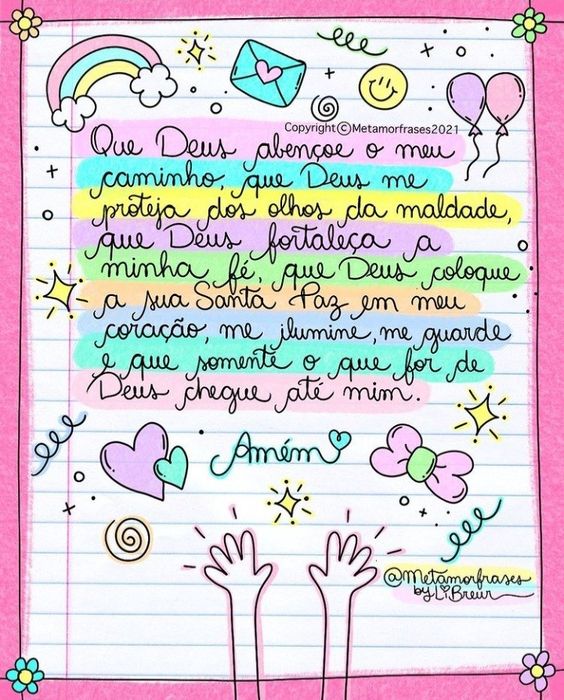 Copyright ©Metamorfrases2021
Que Deus abençoe o meu
caminho, que Deus me
proteja dos olhos da maldade,
que Deus fortaleça a
minha fé, que Deus coloque
a sua Santa Paz em meu
coração, me ilumine, me guarde
e que somente o que for de
Deus chegue até mim.
Amém
@metamorfrases
by Li Breur